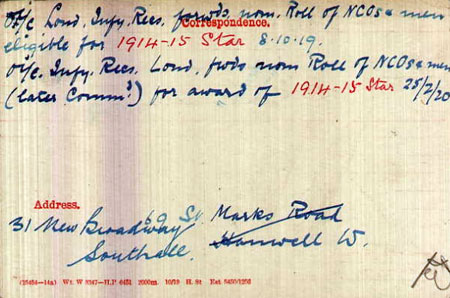 Correspondence.
O/c. Lond. Infy. Recs. forwds nom. Roll of NCOs & men
eligible for 1914-15 Star 8.10.19.
O i/c. Infy. Recs. Lond. fwds nom Roll of NCOs & men
(later Commd) for award of 1914-15 Star 25/2/20
Address.
59 St Marks Road
Hanwell W.
31 New Broadway
Southall.
2000m 10/19 H. St